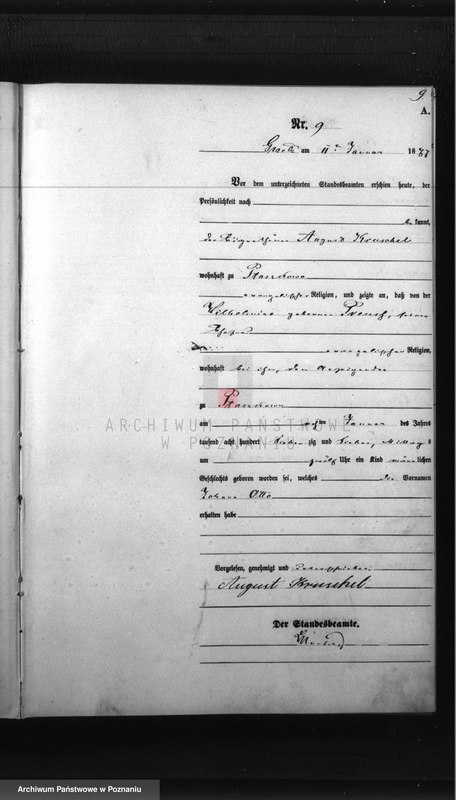 9
A.
Nr. 9
am 11ten Januar 1877
Vor dem unterzeichneten Standesbeamten erschien heute, der
Persönlichkeit nach
be kannt,
der August Kruschel
wohnhaft zu Ptaszkowo
evangelischer Religion, und zeigte an, daß von der
Wilhelmine geborenen seiner
Ehefrau
evangelischer Religion,
wohnhaft bei ihm, dem Anzeigenden
zu Ptaszkowo
am ten Januar des Jahres
tausend acht hundert sieben zig und sieben, Mittags
um zwölf Uhr ein Kind männlichen
Geschlechts geboren worden sei, welches die Vornamen
Johann Otto
erhalten habe
Vorgelesen, genehmigt und unterschrieben
August Kruschel
Der Standesbeamte.
ARCHIWUM PAŃSTWOWE
W POZNANIU
Archiwum Państwowe w Poznaniu